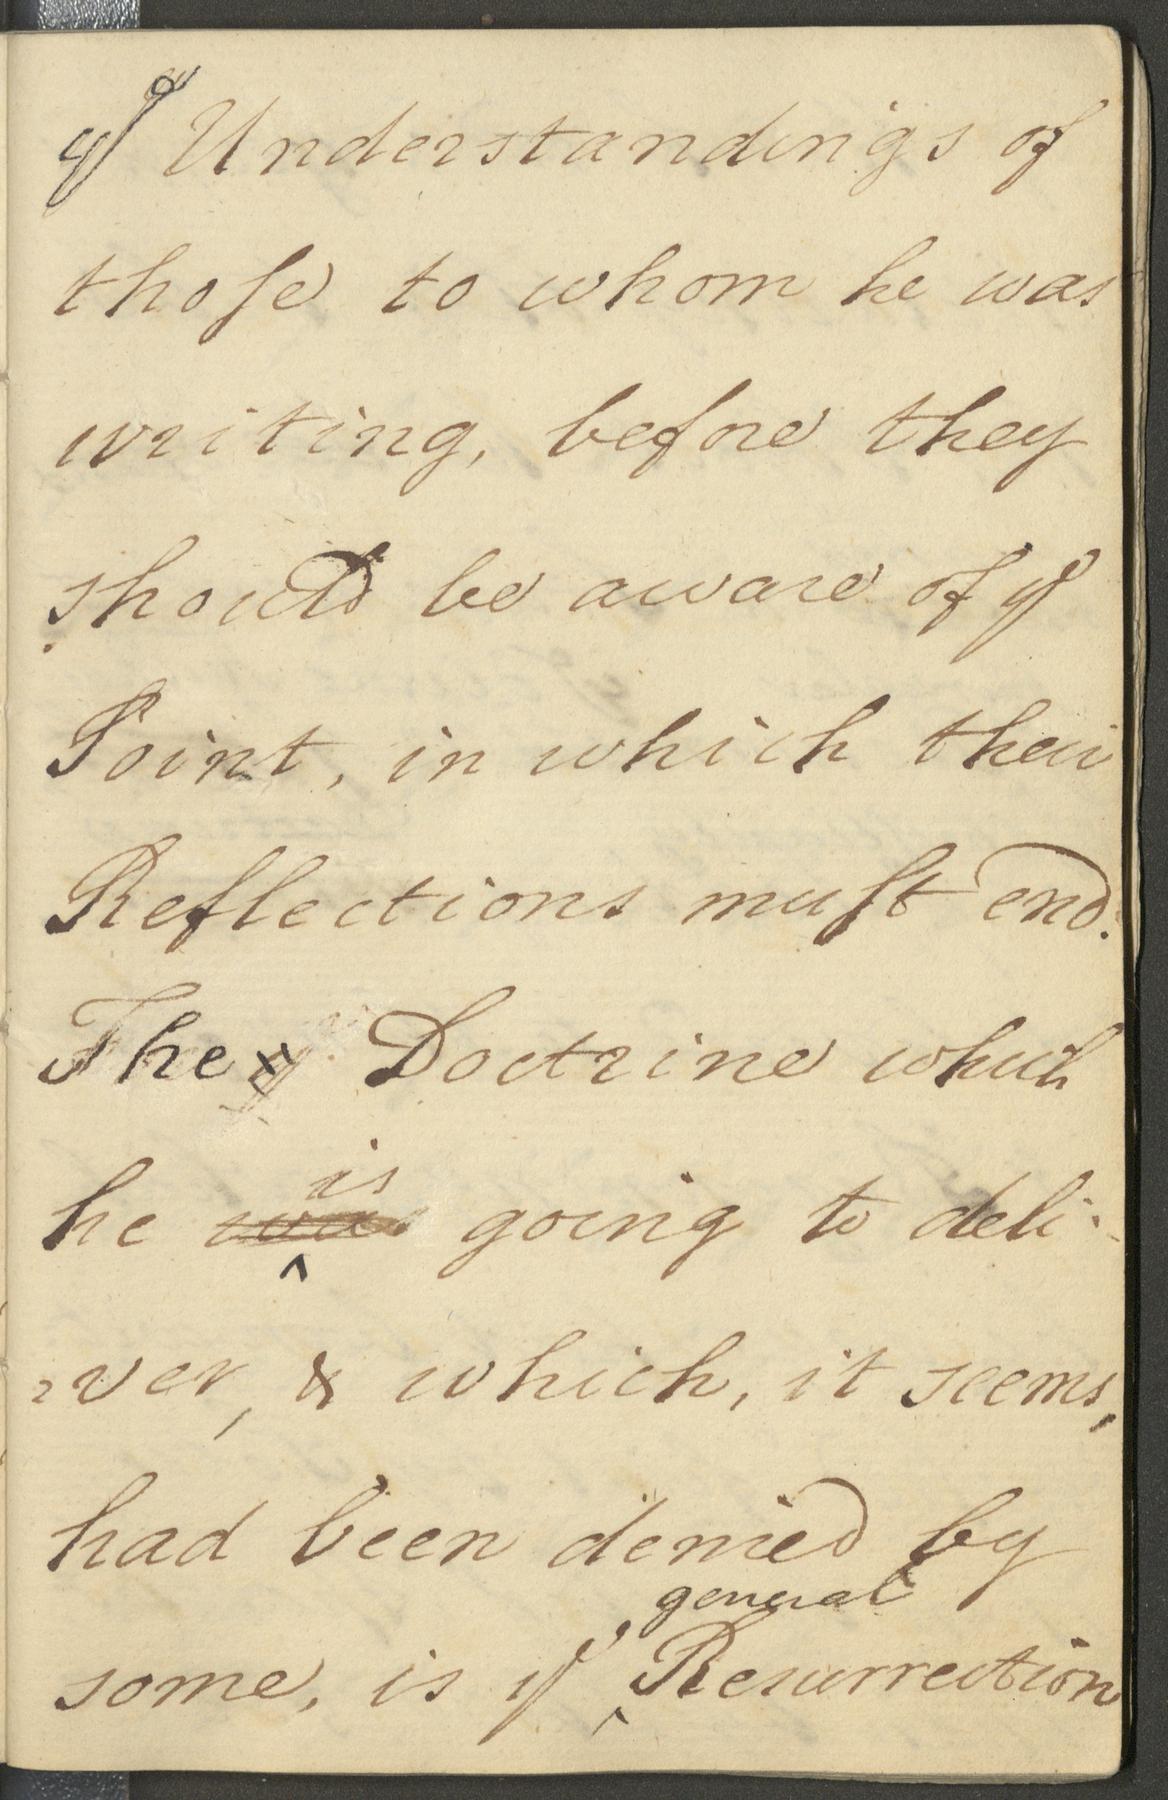 ye Understandings of
thoſe to whom he was
writing, before they
should be aware of ye
Point, in which their
Reflections muſt end.
The Doctrine which
is
he was going to deli-
-ver, & which, it seems,
had been denied by
general
some, is ye ^ Resurrection